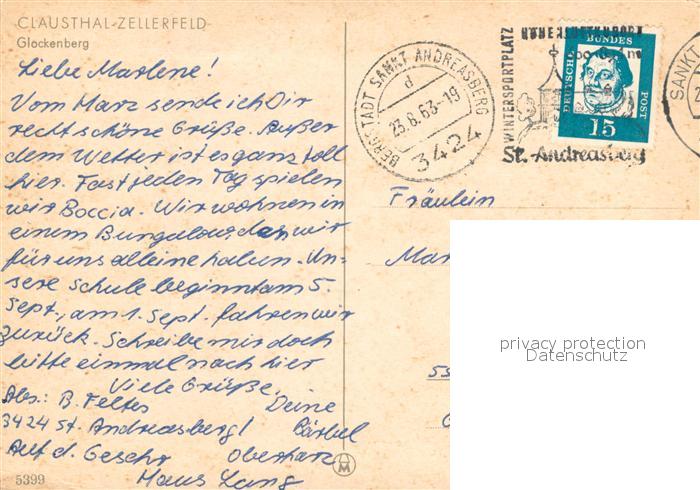 CLAUSTHAL-ZELLERFELD
Glockenberg
Liebe Marlene!
Vom Harz sende ich Dir
recht schöne Grüße. Außer
dem Wetter ist es ganz toll
hier. Fast jeden Tag spielen
wir Boccia. Wir wohnen in
einem Bungalow, den wir
für uns alleine haben. Un-
sere Schule beginnt am 5.
Sept., am 1. Sept. fahren wir
zurück. Schreibe mir doch
bitte einmal nach hier
Viele Grüße.
Deine
Bärbel
Abs.: B. Feltes
3424 St. Andreasberg/
Oberharz
Auf d. Geschr
Haus Lang
5399
BERGSTADT SANKT ANDREASBERG
d
23.8.63-19
3424
WINTERSPORTPLATZ
St. Andreasberg
DEUTSCHE
BUNDES
POST
15
SANKT
2
Fräulein
Mar
55
privacy protection
Datenschutz